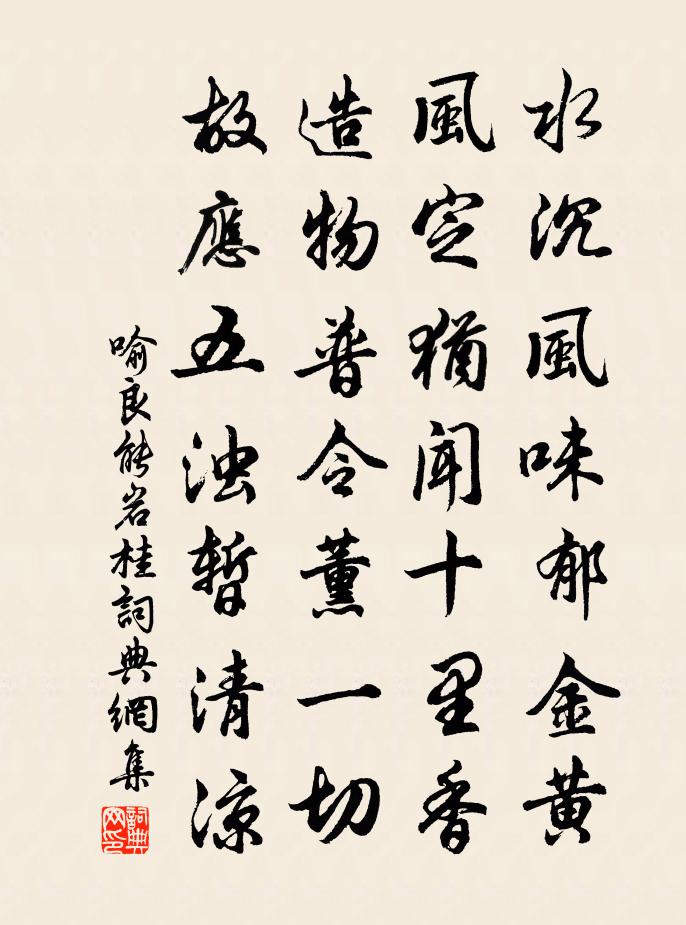 水沉風味郁金黄
風定猶聞十里香
造物普令薰一切
故應五浊暫清凉
喻良能岩桂詞典網集
詞典网印